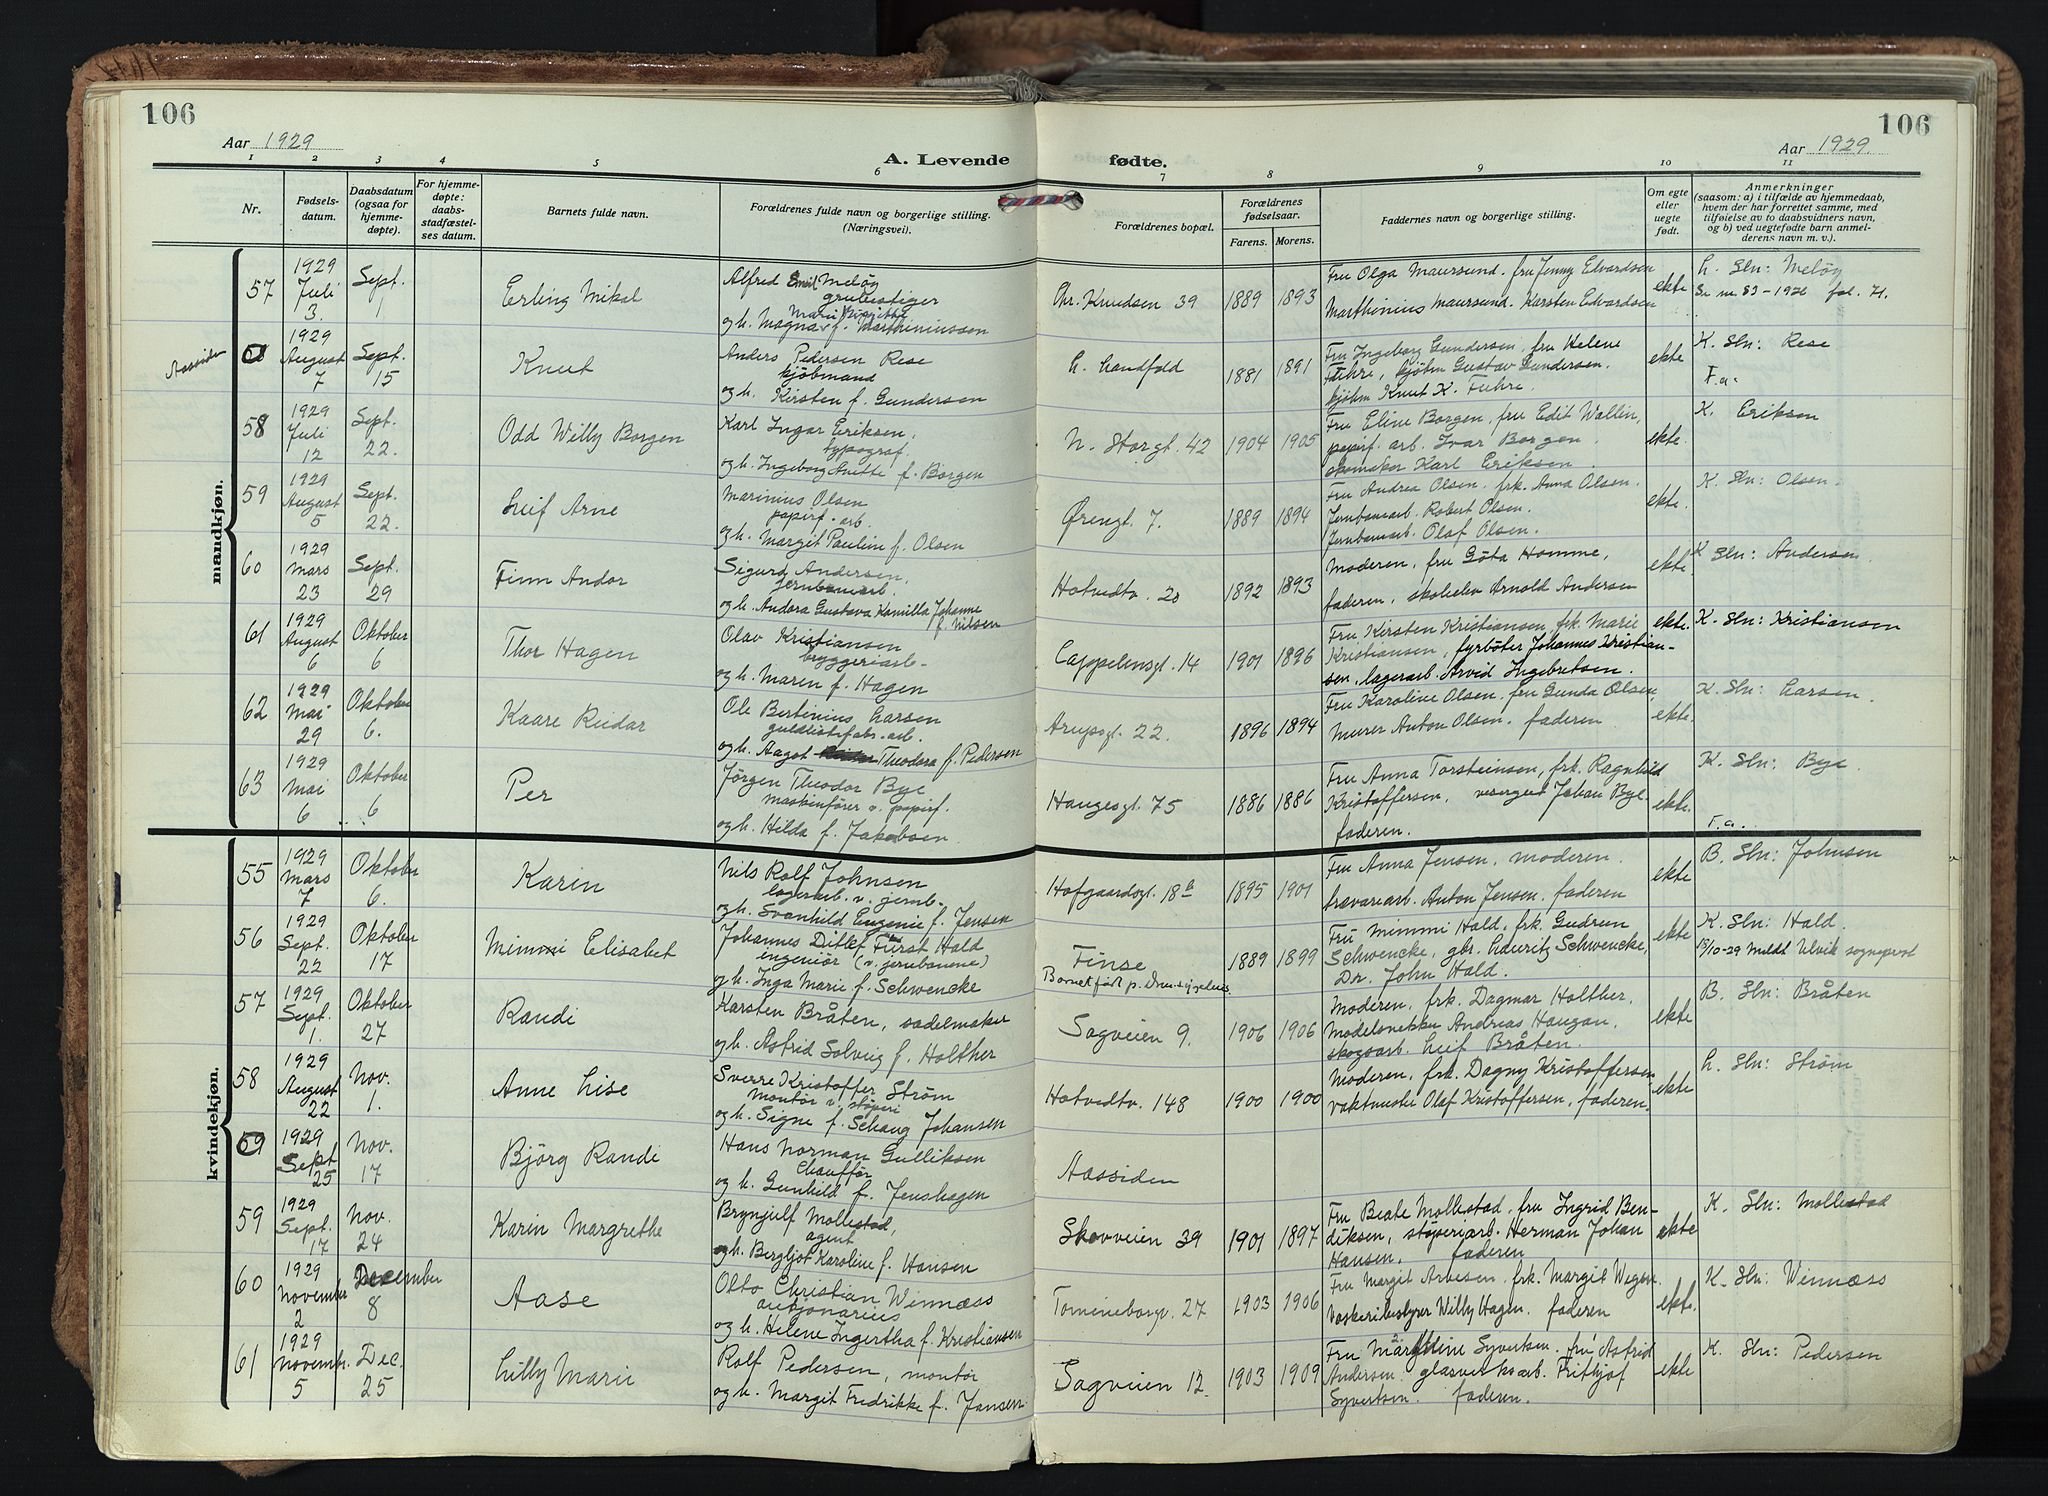 106
106
Aar 1929
Aar 1929
A. Levende fødte.
1 2 3 4 5 6 7 8 9 10 11
Nr.
Fødsels-
datum.
Daabsdatum
(ogsaa for
hjemme-
døpte).
For hjemme-
døpte:
daabs-
stadfæstel-
ses datum.
Barnets fulde navn.
Forældrenes fulde navn og borgerlige stilling.
(Næringsvei).
Forældrenes bopæl.
Forældrenes
fødselsaar.
Farens. Morens.
Faddernes navn og borgerlige stilling.
Om egte
eller
uegte
født.
Anmerkninger
(saasom: a) i tilfælde av hjemmedaab,
hvem der har forrettet samme, med
tilføielse av to daabsvidners navn,
og b) ved uegtefødte barn anmel-
derens navn m. v.).
mandkjøn.
57
1929
Juli
3.
Sept.
1
Erling Mikal
Alfred Emil Meløy
grubestiger
Marie Birgitte
og h. Magna f. Marthiniussen
Chr. Knudsen 39
1889 1893
Fru Olga Maursund. fru Jenny Edvardsen
Marthinius Maursund. Karsten Edvardsen
ekte
L. Sln: Meløy
Se nr 83-1926 fol. 71.
Aassiden
1929
August
7
Sept.
15
Knut
Anders Pedersen Rese
kjöbmand
og h. Kirsten f. Gundersen
L. Landfald
1881 1891
Fru Ingeborg Gundersen, fru Helene
Fuhre, kjøbm Gustav Gundersen.
kjøbm Knut K. Fuhre.
ekte
K. Sln: Rese
F.a:
58
1929
Juli
12
Sept.
22.
Odd Willy Borgen
Karl Ingar Eriksen,
typograf.
og h. Ingeborg Anette f. Borgen
N. Storgt. 42
1904 1905
Fru Eline Borgen, fru Edit Wallin,
papirf. arb. Ivar Borgen.
skomaker Karl Eriksen.
ekte.
K. Eriksen
59
1929
August
5
Sept.
22.
Leif Arne
Marinius Olsen
papirf.-arb.
og h. Margit Pauline f. Olsen
Ørengt. 7.
1889 1894
Fru Andrea Olsen. frk. Anna Olsen.
Jernbanearb. Robert Olsen.
Jernbanearb. Olaf Olsen.
ekte.
K. Sln: Olsen.
60
1929
Mars
23
Sept.
29
Finn Andor
Sigurd Andersen,
jernbanearb.
og h. Andora Gustava Kamilla Johanne
f. Nilsen
Hotvedtv. 20
1892 1893
Moderen, fru Göta Homme,
faderen, skoleelev Arnold Andersen
ekte.
K Sln: Andersen
61
1929
August
6
Oktober
6
Thor Hagen
Olav Kristiansen
bryggeriarb-
og h. Maren f. Hagen
Cappelensgt. 14
1901 1896
Fru Kirsten Kristiansen, frk. Marie
Kristiansen, fyrböter Johannes Kristian-
sen, lagerarb. Arvid Ingebretsen.
ekte.
K. Sln: Kristiansen
62
1929
Mai
29
Oktober
6.
Kaare Reidar
Ole Bertinius Larsen
guldlistefabr.-arb.
og h. Aagot Theodora f. Pedersen
Arupsgt. 22.
1896 1894
Fru Karoline Olsen. fru Gunda Olsen,
murer Anton Olsen, faderen.
ekte.
K. Sln: Larsen.
63
1929
Mai
6
Oktober
6
Per
Jørgen Theodor Bye
maskinfører v. papirf.
og h. Hilda f. Jakobsen
Haugesgt. 75
1886 1886
Fru Anna Torsteinsen, frk. Ragnhild
Kristoffersen, visergut Johan Bye.
faderen.
ekte.
K. Sln: Bye.
F.a.
kvindekjøn.
55
1929
Mars
7
Oktober
6.
Karin
Nils Rolf Johnsen
lagerarb. v. jernb-
og h. Svanhild Eugenie f. Jensen
Hofgaardsgt. 18 B
1895 1901
Fru Anna Jensen, moderen.
trævarearb. Anton Jensen, faderen
ekte
B. Sln: Johnsen
56
1929
Sept.
22
Oktober
17
Mimmi Elisabet
Johannes Ditlef Fürst Hald
ingeniör (v. jernbanene)
og h. Inga Marie f. Schwencke
Finse
Barnet født p. Drm. sykehus.
1889 1899
Fru Mimmi Hald, frk. Gudrun
Schwencke, gbr. Lauritz Schwencke,
Dr. John Hald.
ekte
K. Sln: Hald.
15/10-29 meldt Ulvik sogneprest
57
1929
Sept.
1.
Oktober
27
Randi
Karsten Bråten, sadelmaker
og h. Astrid Solveig f. Holther
Sagveien 9.
1906 1906
Moderen, frk. Dagmar Holther.
Modelsnekker Andreas Haugan.
skogsarb. Leif Bråten.
ekte
B. Sln: Bråten
58
1929
August
22
Nov.
1.
Anne Lise
Sverre Kristoffer Ström
montör v. støperi
og h. Signe f. Schaug Johansen
Hotvedtv. 148
1900 1900
Moderen, frk. Dagny Kristoffersen
vaktmester Olaf Kristoffersen, faderen.
ekte
L. Sln: Strøm
59
1929
Sept
25
Nov.
17
Björg Randi
Hans Norman Gulliksen
Chauffør
og h. Gunhild f. Jenshagen
Aassiden
59
1929
Sept.
17
Nov.
24
Karin Margrethe
Brynjulf Mollestad,
agent
og h. Bergljot Karoline f. Hansen
Skovveien 39
1901 1897
Fru Beate Mollestad. fru Ingrid Ben-
diksen, støperiarb. Herman Johan
Hansen, faderen
ekte
K. Sln: Mollestad
60
1929
November
2
December
8
Aase
Otto Christian Winnæss
auksjonarius
og h. Helene Ingertha f. Kristiansen
Tomineborgv. 27
1903 1906
Fru Margit Arvesen. frk. Margit Wegner.
Vaskeribestyrer Willy Hagen. faderen
ekte.
K. Sln: Winnæss
61
1929
Novemb.
5
Dec.
25
Lilly Marie
Rolf Pedersen, montör
og h. Margit Fredrikke f. Jansen
Sagveien 12.
1903 1909
Fru Syvertsen. fru Astrid
Andersen. glasverksarb. Fritjof
Syvertsen. faderen.
ekte
K. Sln: Pedersen